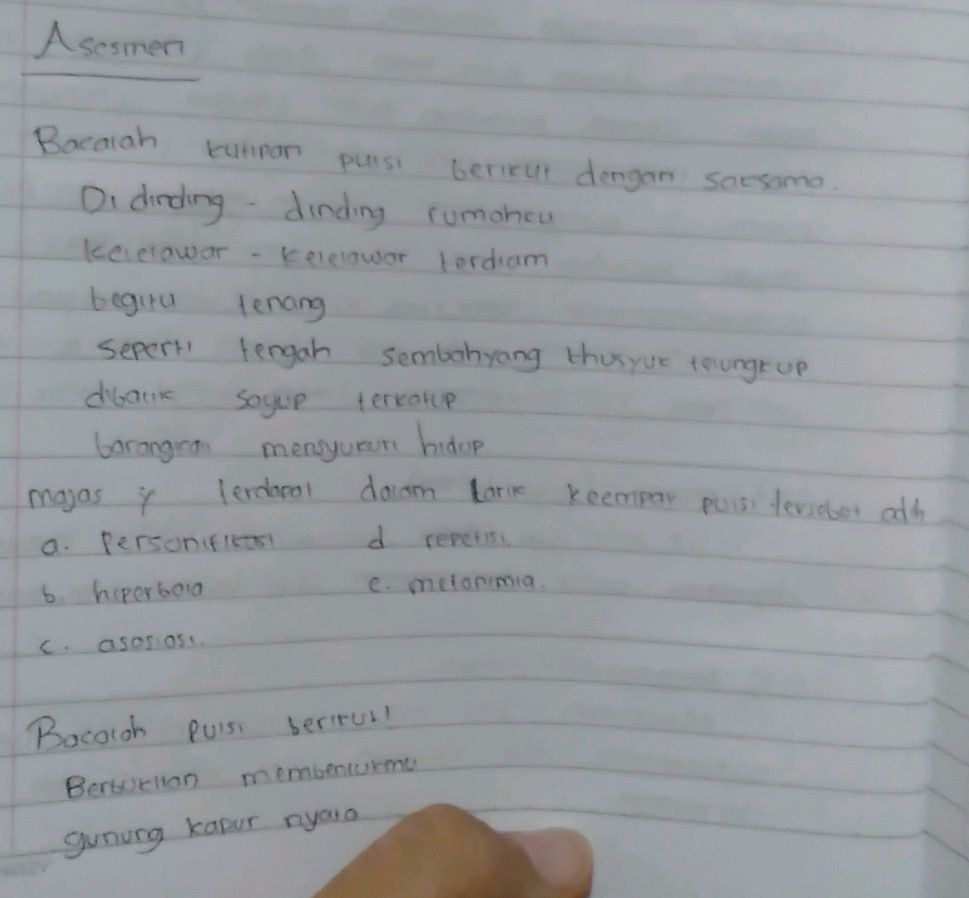 Asesmen
Bacalah kutipan puisi berikut dengan saksama.
Di dinding - dinding rumahku
kelelawar - kelelawar terdiam
begitu tenang
seperti tengah sembahyang khusyuk telungkup
dibalik sayup terkatup
barangkali mensyukuri hidup
majas y terdapat dalam larik keempat puisi tersebut adlh
a. Personifikasi d repetisi.
b. hiperbola. e. metonimia.
c. asosiasi.
Bacalah puisi berikut!
Berbukitan membentukmu
gunung kapur nyala